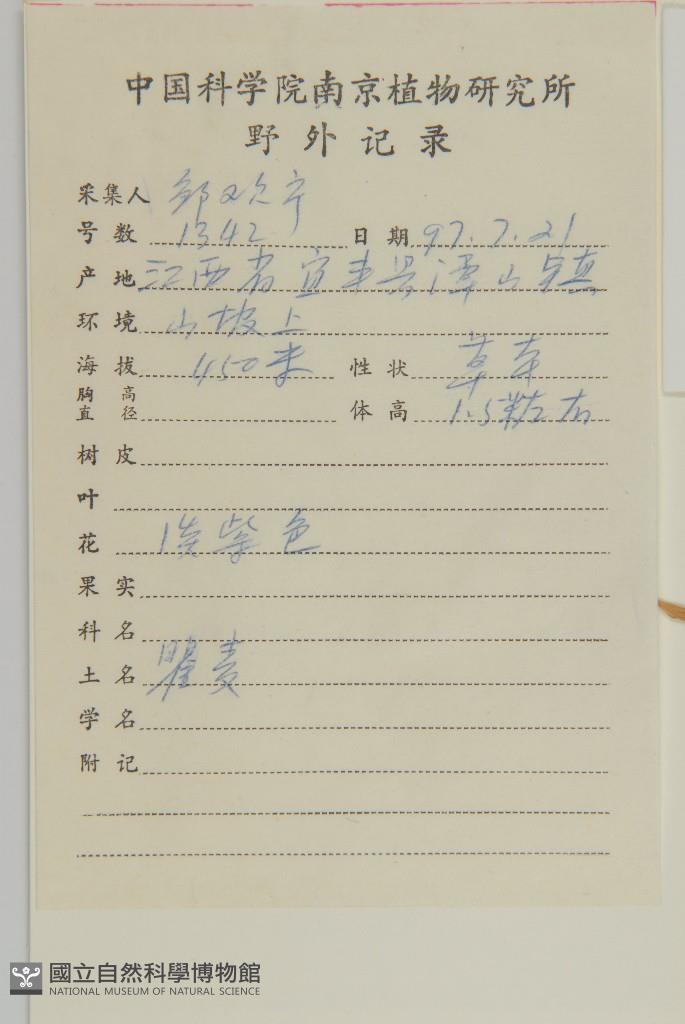 中国科学院南京植物研究所
野外记录
采集人 邹欢宁
号数 1342 日期 97.7.21
产地 江西省宜丰县潭山镇
环境 山坡上
海拔 450米 性状 草本
胸高直径 体高 1.5米左右
树皮
叶
花 淡紫色
果实
科名
土名 瞿麦
学名
附记
國立自然科學博物館
NATIONAL MUSEUM OF NATURAL SCIENCE